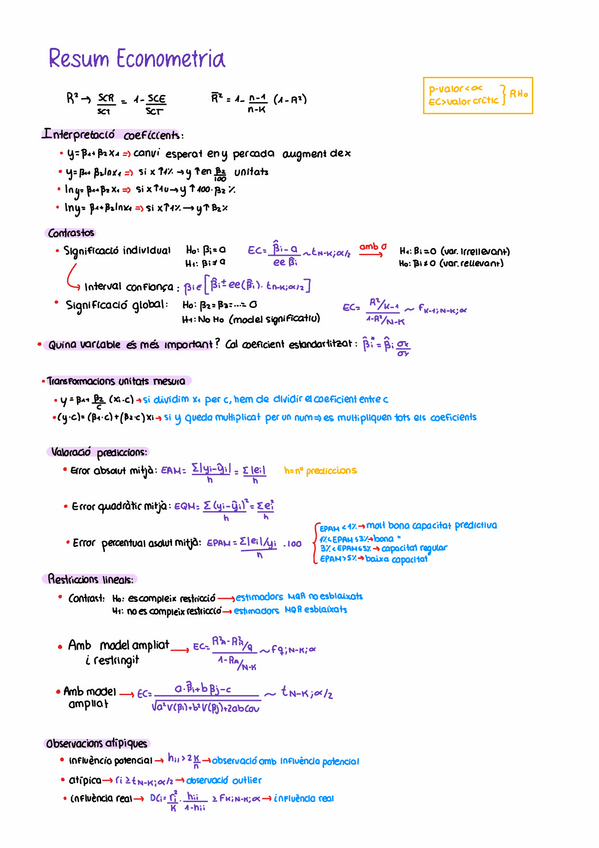 Resum Econometria
R² → SCR/SCT = 1 - SCE/SCT    R̄² = 1 - n-1/n-K (1-R²)
p-valor < α
EC > valor crític } RH₀
Interpretació coeficients:
• y = β₁ + β₂x₁ ⇒ canvi esperat en y per cada augment de x
• y = β₁ + β₂lnx₁ ⇒ si x ↑1% → y ↑ en β₂/100 unitats
• lny = β₁ + β₂x₁ ⇒ si x ↑1u → y ↑ 100·β₂ %
• lny = β₁ + β₂lnx₁ ⇒ si x ↑1% → y ↑ β₂%
Contrastos
• Significació individual    H₀: βᵢ = a    EC = β̂ᵢ - a / ee βᵢ ~ t N-K; α/2    amb 0 →    H₁: βᵢ = 0 (var. irrellevant)
H₁: βᵢ ≠ a    H₀: βᵢ ≠ 0 (var. rellevant)
↳ Interval confiança: βᵢ ∈ [β̂ᵢ ± ee(β̂ᵢ) · t N-K; α/2]
• Significació global:    H₀: β₂ = β₃ = ... = 0    EC = R²/K-1 / 1-R²/N-K ~ F K-1; N-K; α
H₁: No H₀ (model significatiu)
• Quina variable és més important? Cal coeficient estandartitzat: β̂ᵢ* = β̂ᵢ σx/σy
• Transformacions unitats mesura
• y = β₁ + β₂/c (x₁·c) → si dividim x₁ per c, hem de dividir el coeficient entre c
• (y·c) = (β₁·c) + (β₂·c)x₁ → si y queda multiplicat per un num ⇒ es multipliquen tots els coeficients
Valoració prediccions:
• Error absolut mitjà: EAM = Σ|yᵢ-ŷᵢ|/h = Σ|eᵢ|/h    h = nº prediccions
• Error quadràtic mitjà: EQM = Σ(yᵢ-ŷᵢ)²/h = Σeᵢ²/h
• Error percentual asolut mitjà: EPAM = Σ|eᵢ|/yᵢ / n · 100
EPAM < 1% → molt bona capacitat predictiva
1% ≤ EPAM ≤ 3% → bona "
3% < EPAM ≤ 5% → capacitat regular
EPAM > 5% → baixa capacitat
Restriccions lineals:
• Contrast: H₀: es compleix restricció → estimadors MQR no esbiaixats
H₁: no es compleix restricció → estimadors MQR esbiaixats
• Amb model ampliat → EC = R²A - R²R/q / 1-RA/N-K ~ Fq; N-K; α
i restringit
• Amb model → EC = a·β̂ᵢ + bβ̂j - c / √a²V(βᵢ) + b²V(βj) + 2abCov ~ t N-K; α/2
ampliat
Observacions atípiques
• influència potencial → hᵢᵢ > 2 K/n → observació amb influència potencial
• atípica → rᵢ ≥ t N-K; α/2 → observació outlier
• influència real → DCᵢ = rᵢ²/K · hᵢᵢ/1-hᵢᵢ ≥ F K; N-K; α → influència real